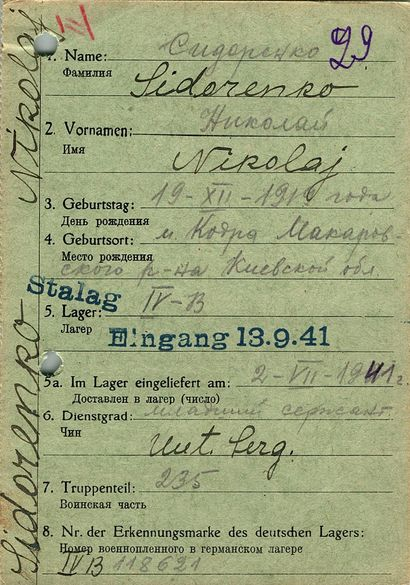 II 29
1. Name: Сидоренко
Фамилия Sidorenko
2. Vornamen: Николай
Имя Nikolaj
3. Geburtstag: 19-XII-191 года
День рождения
4. Geburtsort: м. Кодра Макаров-
Место рождения ского р-на Киевской обл
Stalag
5. Lager: IV-B
Лагер Eingang 13.9.41
5a. Im Lager eingeliefert am: 2-VII-1941 г.
Доставлен в лагер (число)
6. Dienstgrad: младший сержант
Чин Unt. Serg.
7. Truppenteil: 235
Воинская часть
8. Nr. der Erkennungsmarke des deutschen Lagers:
Номер военнопленного в германском лагере
IV B 118621
Sidorenko Nikolaj